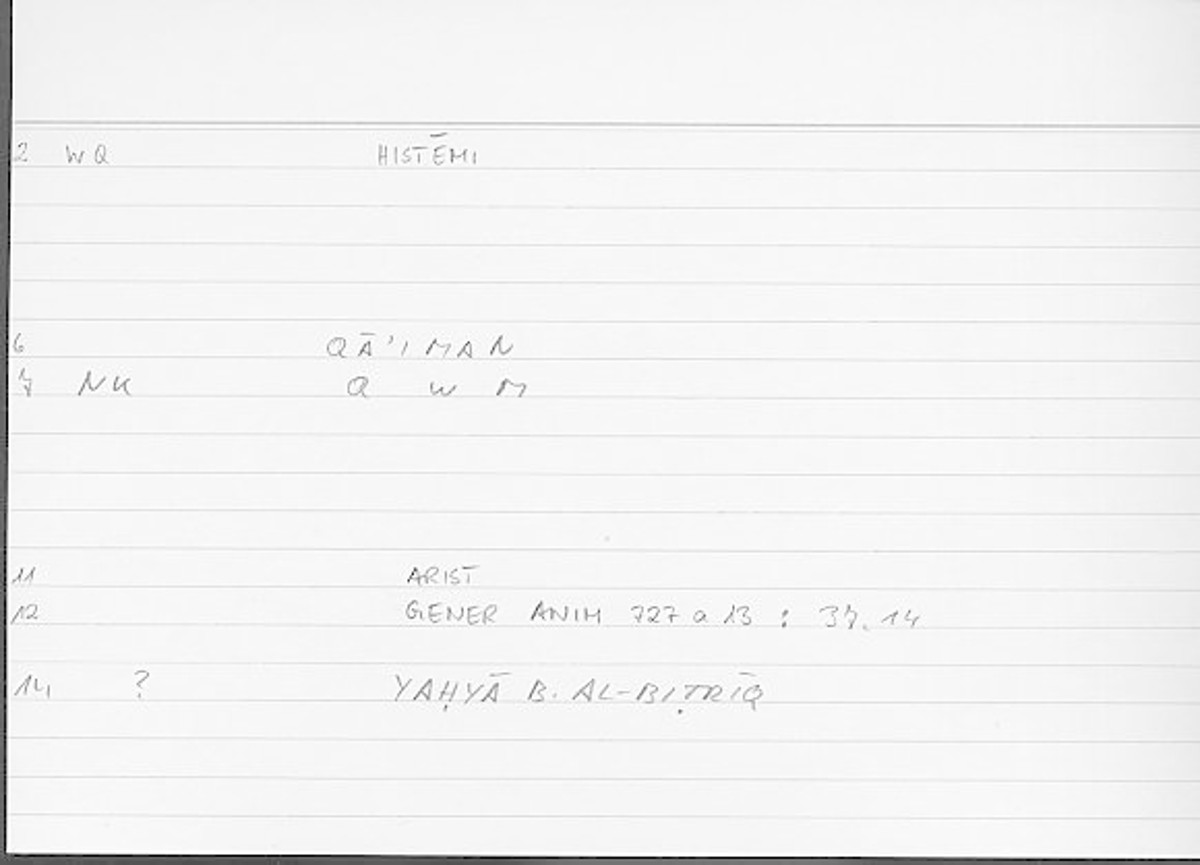 2 WQ HISTĒMI
6 QĀ'IMAN
7 NK Q W M
11 ARIST
12 GENER ANIM 727 a 13 : 37. 14
14 ? YAḤYĀ B. AL-BIṬRĪQ